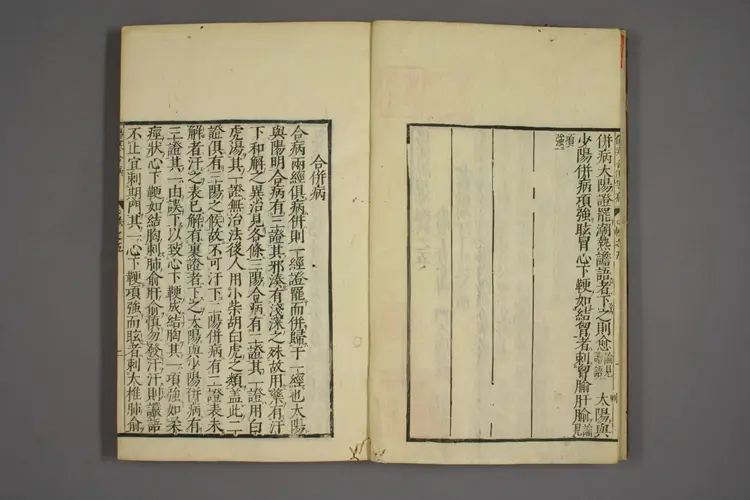 併病太陽證罷潮熱譫語者下之則愈論見譫語 太陽與
少陽併病項強眩冒心下鞕如結胷者刺胷腧肝腧論見
項強
合併病
合病兩經俱病併則一經證罷而併歸于一經也太陽
與陽明合病有三證其邪湊有淺深之殊故用藥有汗
下和解之異治見各條三陽合病有二證其一證用白
虎湯其一證無治法後人用小柴胡白虎之類蓋此二
證俱有三陽之候故不可汗下二陽併病有二證表未
解者汗之表已解有裏證者下之太陽與少陽併病有
三證其一由誤下以致心下鞕成結胸其一項強如
痓狀心下鞕如結胸刺肺俞肝俞慎勿發汗汗則譫語
不止宜刺期門其一心下鞕項強而眩者刺大椎肺俞